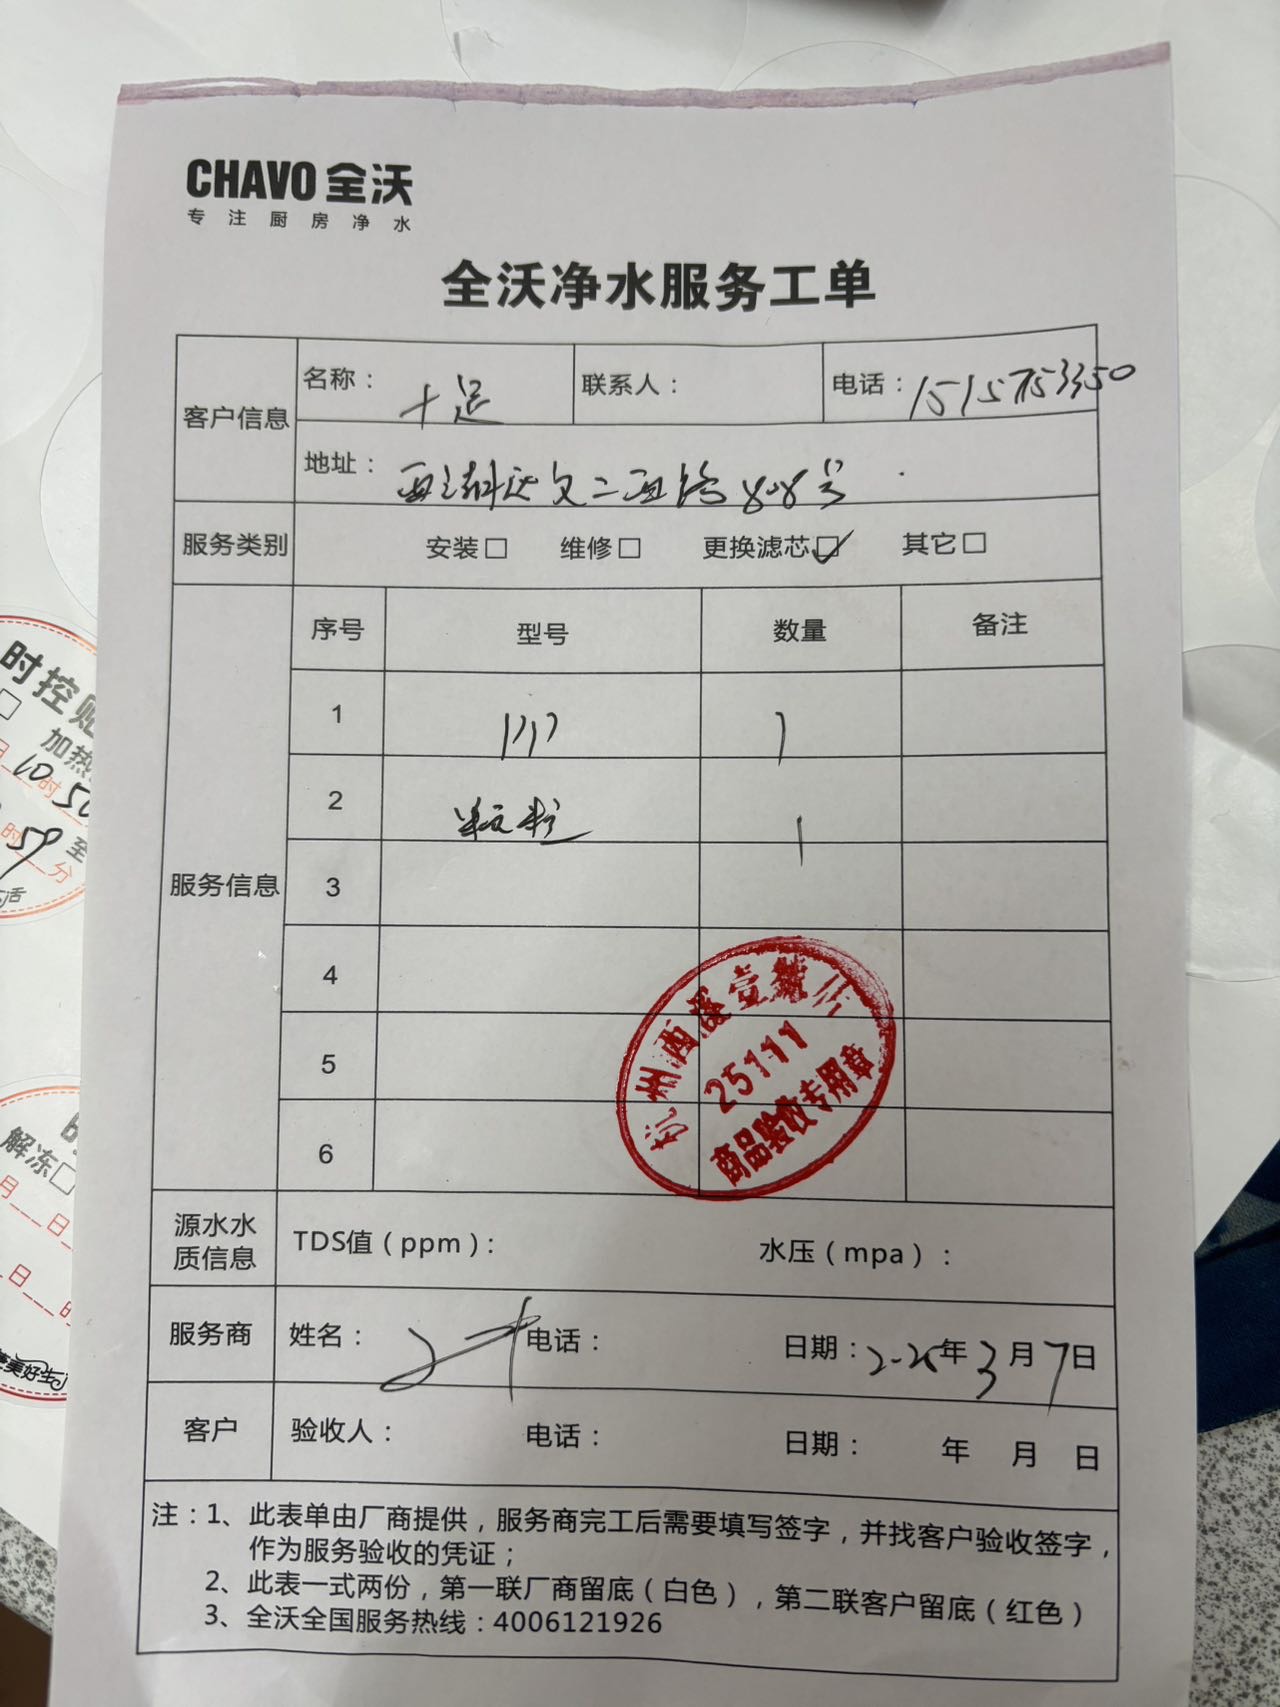 CHAVO 全沃
专注厨房净水
全沃净水服务工单
客户信息
名称：十足
联系人：
电话：15157153350
地址：西湖区文二西路808号
服务类别
安装□ 维修□ 更换滤芯☑ 其它□
服务信息
序号 型号 数量 备注
1 1
2 1
3
4
5
6
杭州西溪壹
25111
商品验收专用章
源水水质信息
TDS值（ppm）：
水压（mpa）：
服务商
姓名：
电话：
日期： 年3月7日
客户
验收人：
电话：
日期： 年 月 日
注：1、此表单由厂商提供，服务商完工后需要填写签字，并找客户验收签字，
作为服务验收的凭证；
2、此表一式两份，第一联厂商留底（白色），第二联客户留底（红色）
3、全沃全国服务热线：4006121926
时控贴
加热
10时50
时59分
至
解冻□
月 日
日 时
美好生